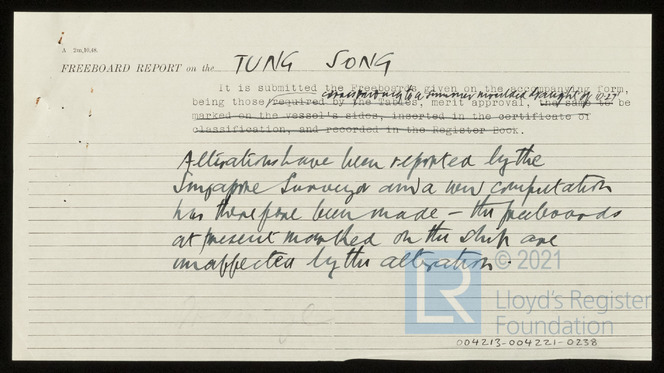 A 2m,10,48.
FREEBOARD REPORT on the TUNG SONG
It is submitted the Freeboards given on the accompanying form,
corresponding to a summer moulded draught of
being those required by the Tables, merit approval, the same to be
marked on the vessel's sides, inserted in the certificate of
classification, and recorded in the Register Book.
Alterations have been reported by the
Singapore Surveyor and a new computation
has therefore been made – the freeboards
at present marked on the ship are
unaffected by the alteration.
© 2021
LR
Lloyd's Register
Foundation
004213-004221-0238